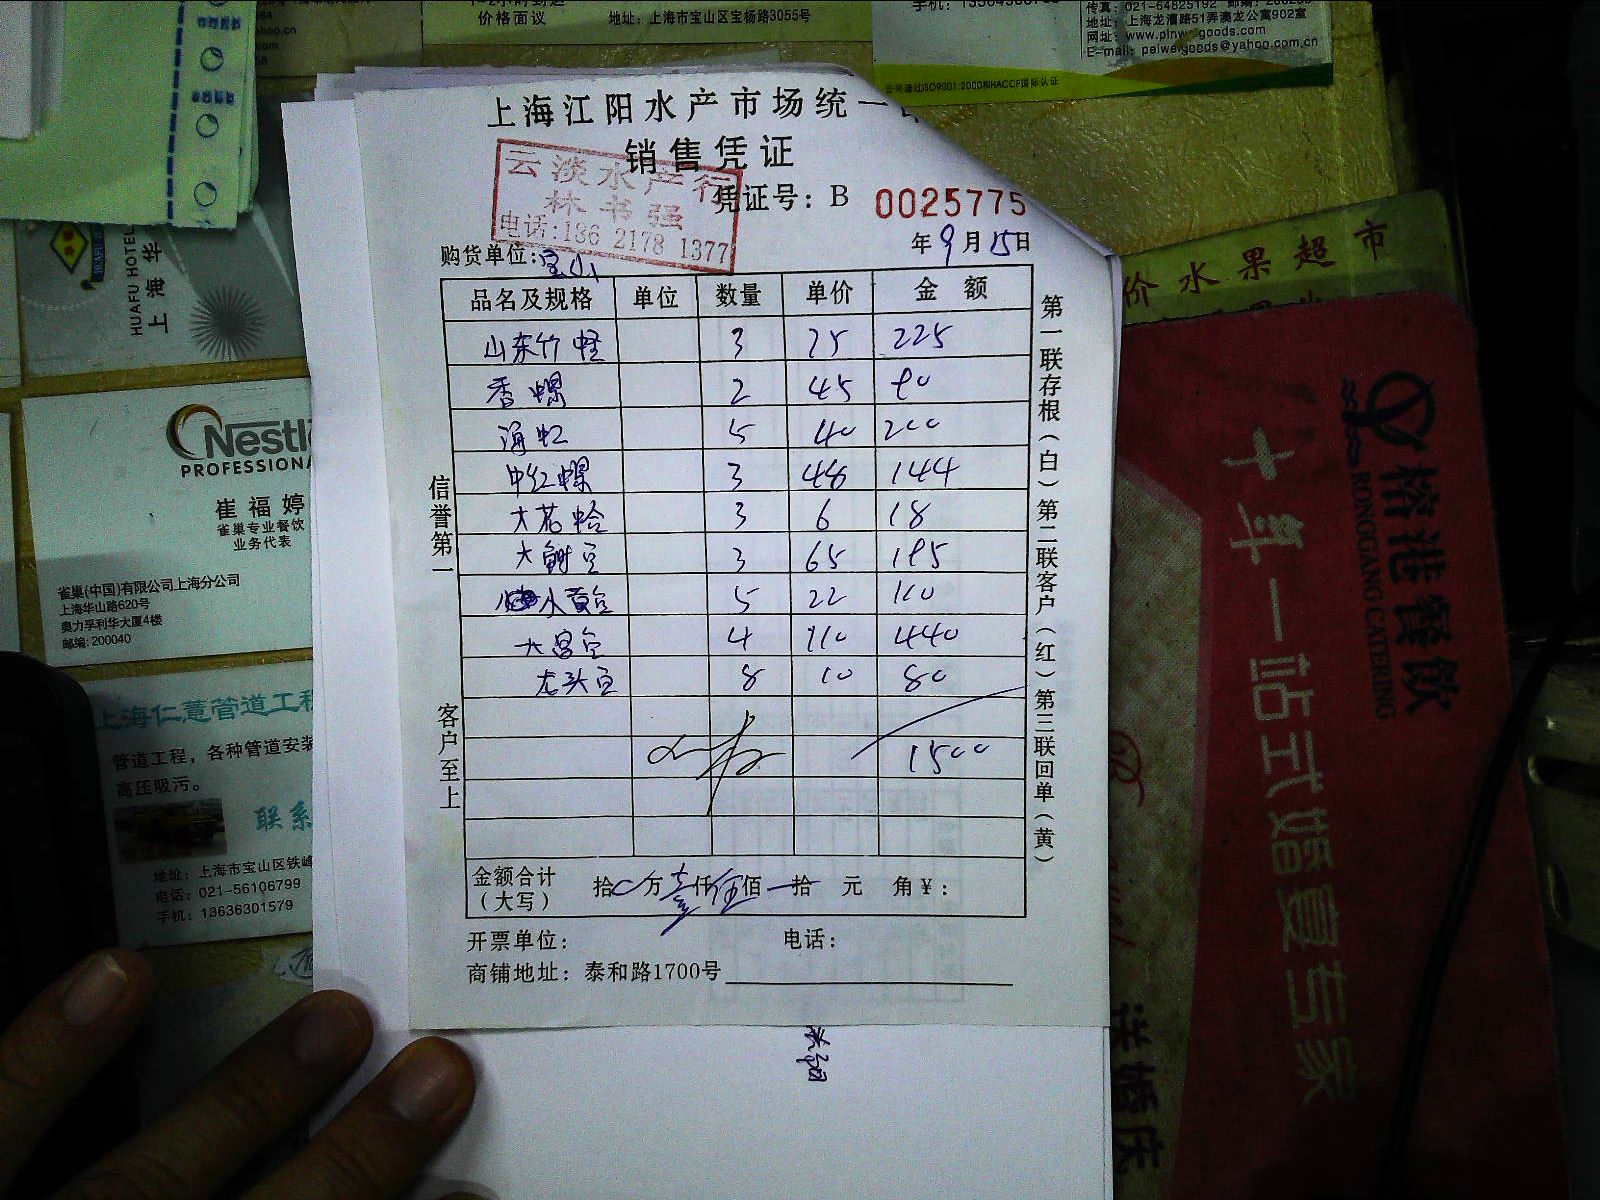 价格面议
地址：上海市宝山区宝杨路3055号
传真：021-64825192
地址：上海龙漕路51弄澳龙公寓902室
网址：www.pinweigoods.com
E-mail：peiweigoods@yahoo.com.cn
公司通过ISO9001:2000和HACCP国际认证
上海江阳水产市场统一
销售凭证
云淡水产行
林书强
电话:136 2178 1377
凭证号：B 0025775
年9月15日
购货单位:宝山
品名及规格 单位 数量 单价 金额
山东竹蛏 3 75 225
香螺 2 45 90
海虹 5 40 200
中红螺 3 48 144
大花蛤 3 6 18
大鲥豆 3 65 195
小黄豆 5 22 110
大宫豆 4 110 440
老头豆 8 10 80
1500
金额合计（大写） 拾万壹仟伍佰拾元角￥：
开票单位： 电话：
商铺地址：泰和路1700号
信誉第一
客户至上
第一联存根(白)第二联客户(红)第三联回单(黄)
HUAFU HOTEL
上海华
Nestl
PROFESSIONA
崔福婷
雀巢专业餐饮
业务代表
雀巢(中国)有限公司上海分公司
上海华山路620号
奥力孚利华大厦4楼
邮编: 200040
上海仁薏管道工程
管道工程，各种管道安装
高压吸污。
联系
地址：上海市宝山区铁峰
电话：021-56106799
手机：13636301579
价水果超市
榕港餐飲
RONGGANG CATERING
十年一站式婚宴专家
送婚庆